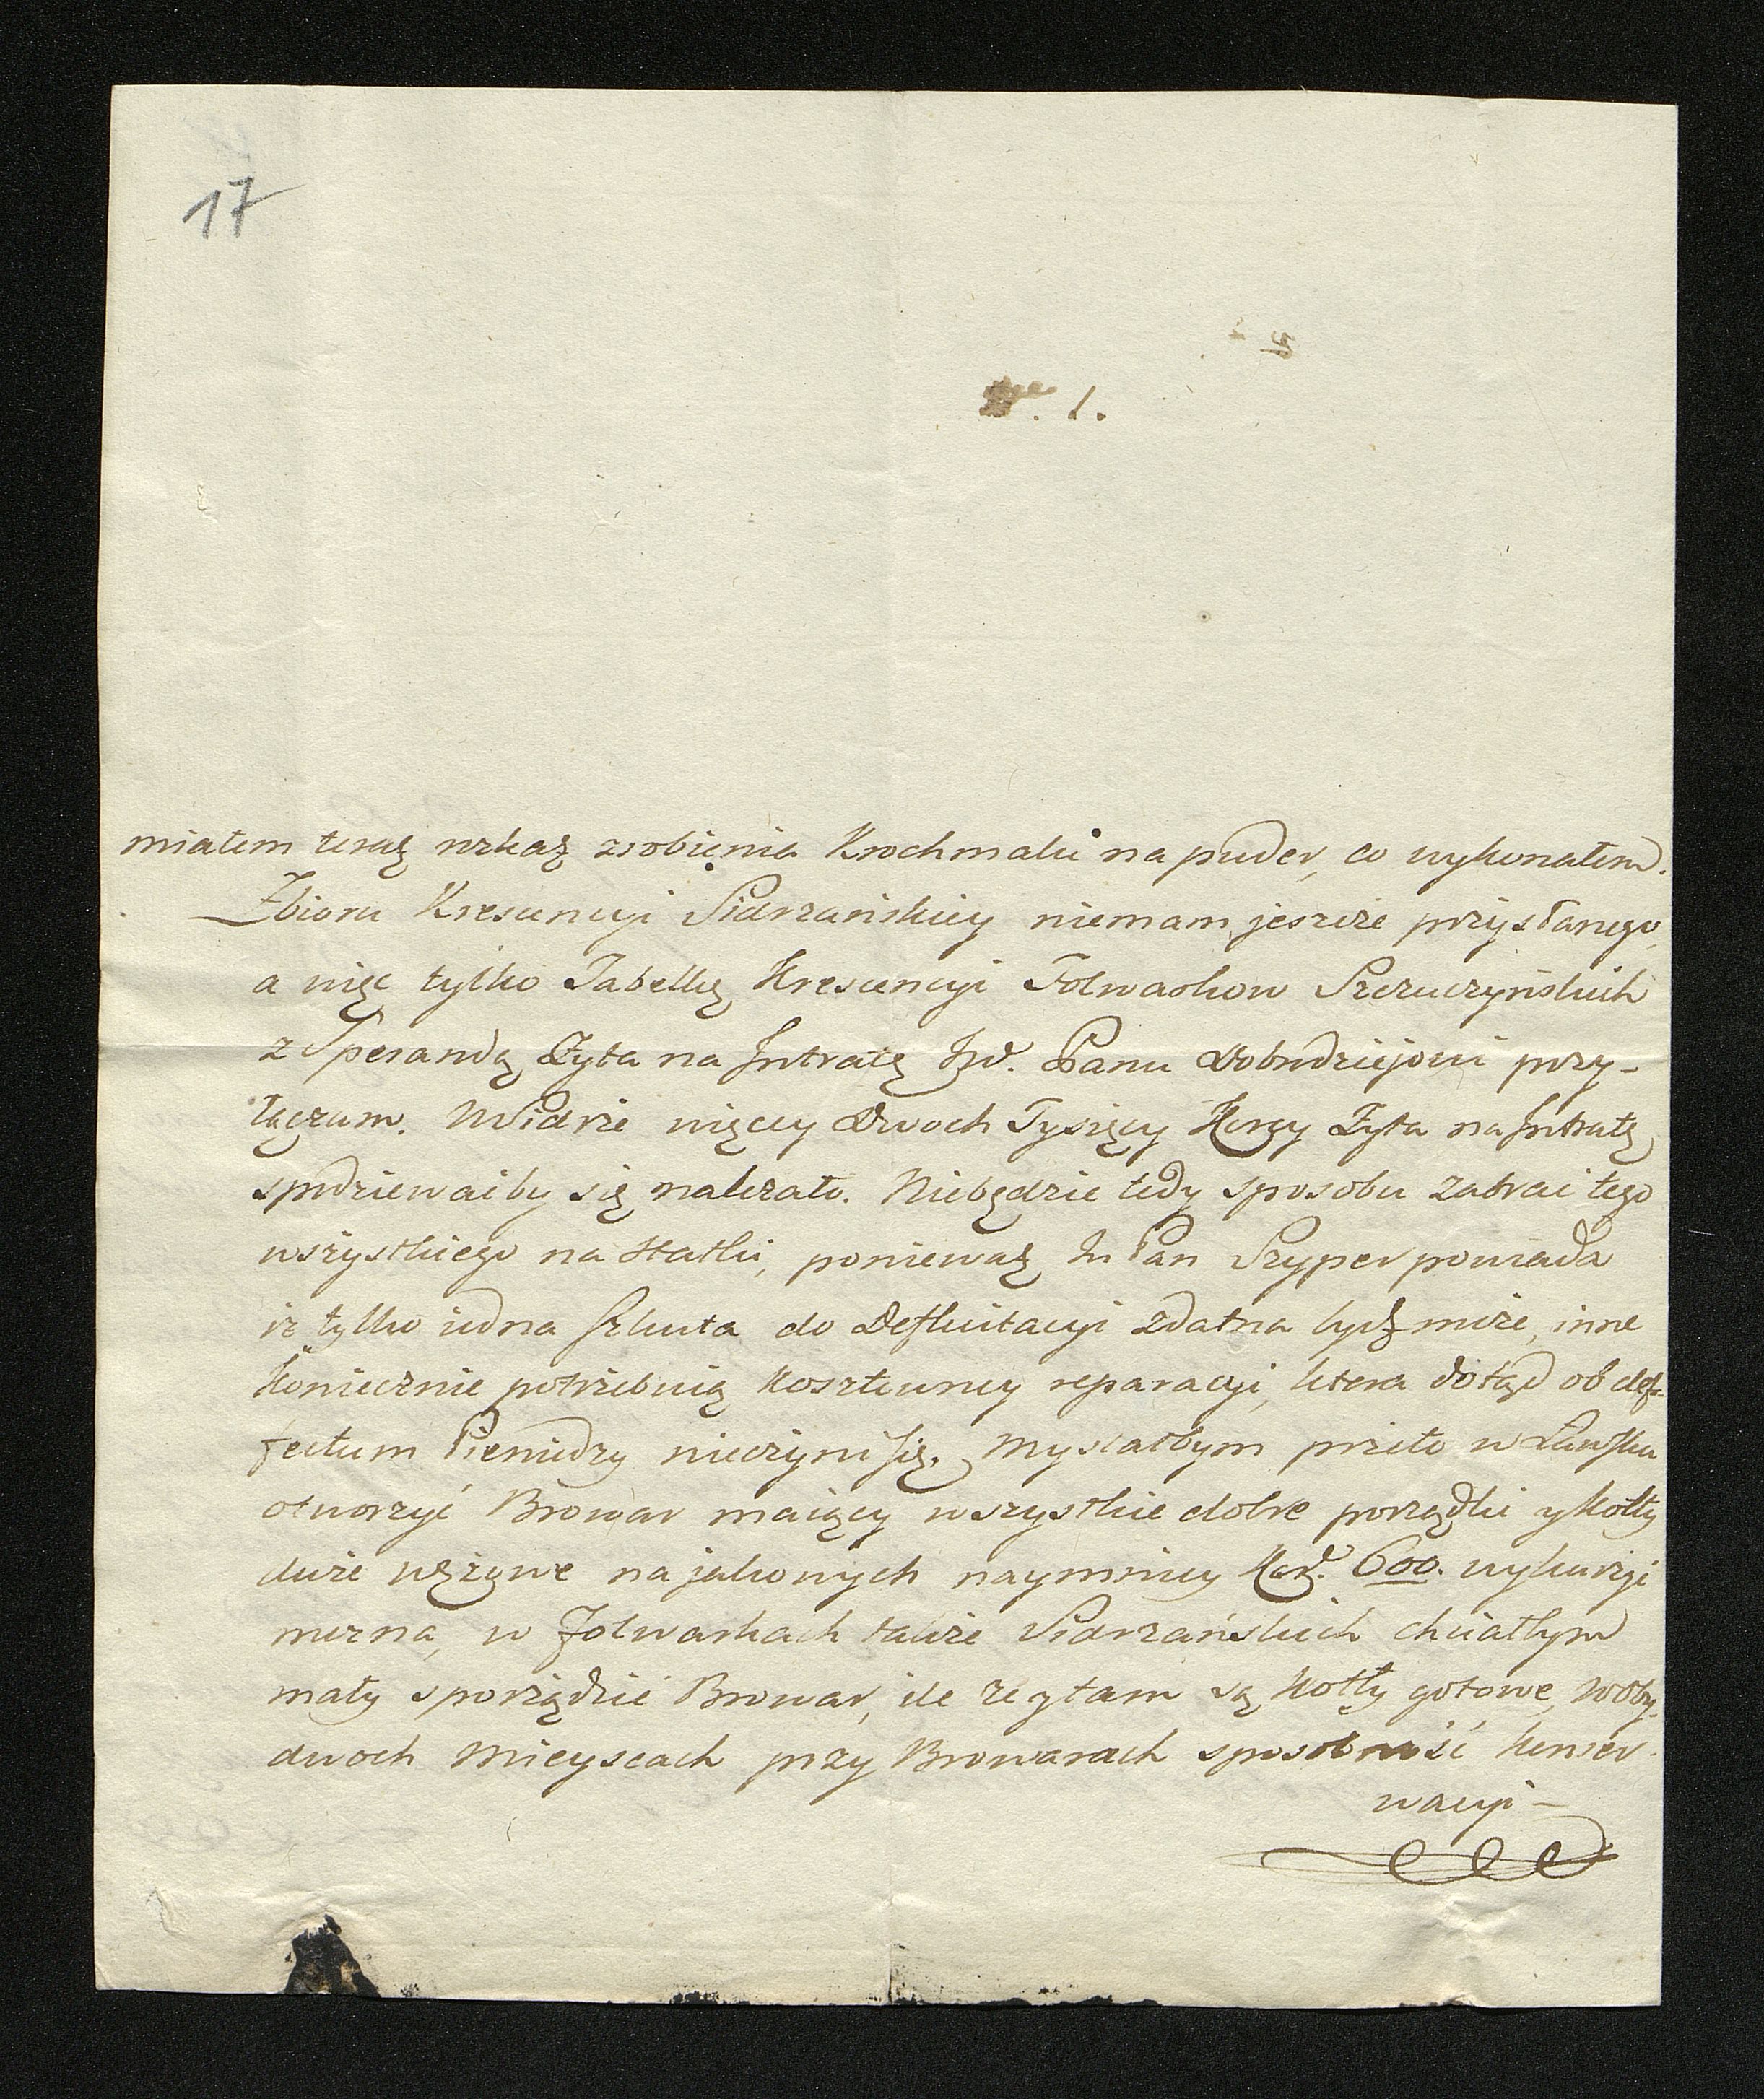 17
1.
miałem teraz rozkaz zrobienia Krochmalu na puder, co wykonałem.
Zbioru Krescencyi Sidrzańskiey niemam jeszcze przysłanego,
a więc tylko Tabellę Krescencyi Folwarkow Szczuczyńskich
z Sperandą Żyta na Intratę Jw. Panu Dobrodziejowi przy-
łączam. Widzie więcey Dwoch Tysięcy Korcy Żyta na Intratę
spodziewaćby się należało. Niebędzie tedy sposobu zabrać tego
wszystkiego na statki, ponieważ Im Pan Szyper powiada
iż tylko iedna szkuta do Defluitacyi zdatna bydź może, inne
koniecznie potrzebuią kosztowney reparacyi, ktora dotąd ob def-
fectum Pieniędzy nieczyni się. Myślałbym przeto w
otworzyć Browar maiący wszystkie dobre porządki y kotły
duże wężowe na jakowych naymniey Kor. 600. wykurzyć
można, w Folwarkach także Sidrzańskich chciałbym
mały sporządzić Browar, ile że y tam są kotły gotowe, w oby-
dwoch mieyscach przy Browarach sposobność konser-
wacyi –